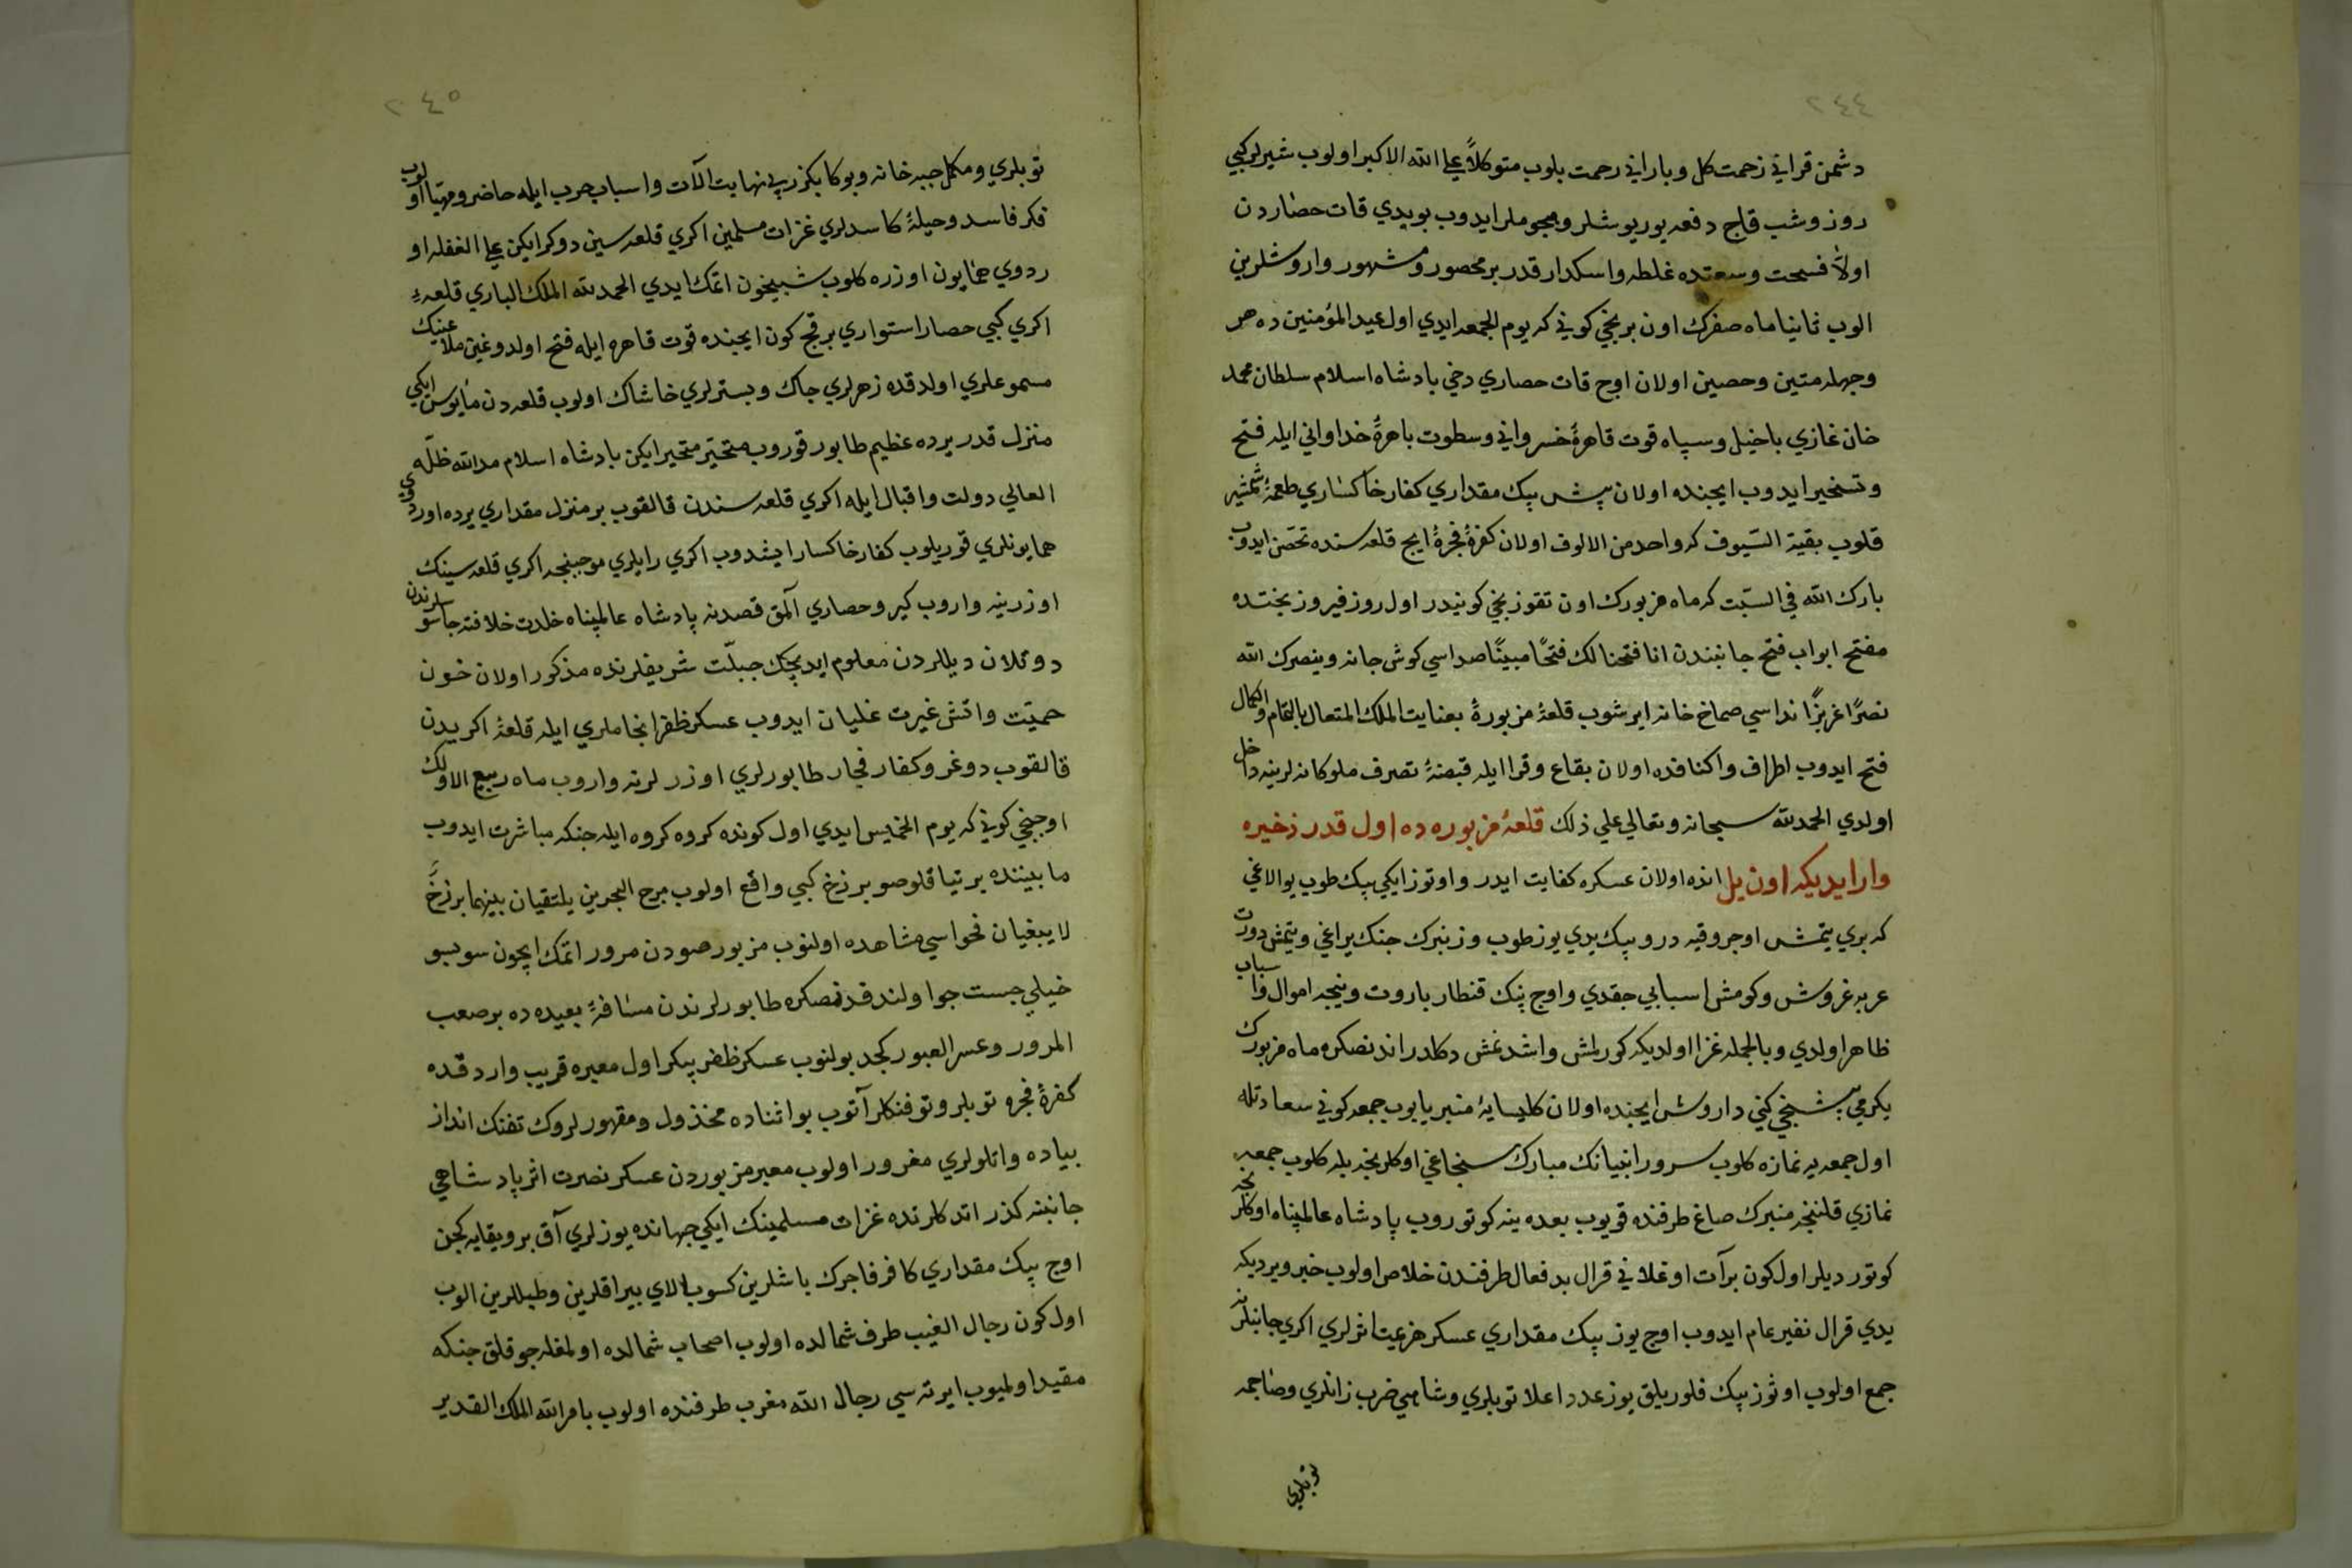 ٢٤٤
دشمن قرانی زحمت كل و بارانی رحمت بلوب متوكلاً علی الله الاكبر اولوب شیرلر كبی
روز و شب قاچ دفعه یوریوشلر و هجوملر ایدوب بو یدی قات حصاردن
اولاً فسحت و سعتده غلطه و اسكدار قدر بر محصور و مشهور واروشلرین
الوب ثانیا ماه صفرك اون برنجی كونی كه یوم الجمعه ایدی اول عید المؤمنین ده هر
وجهله متین و حصین اولان اوچ قات حصاری دخی پادشاه اسلام سلطان محمد
خان غازی باخیل و سپاه قوت قاهرۀ خسروانی و سطوت باهرۀ خداوانی ایله فتح
و تسخیر ایدوب ایچنده اولان بش بیك مقداری كفار خاكساری طعمۀ شمشیر
قلوب بقیة السیوف كه واحد من الالوف اولان كفرۀ فجرۀ ایچ قلعه سنده تحصن ایدوب
بارك الله فی السبت كه ماه مزبورك اون تقوزنجی كونیدر اول روز فیروز بختده
مفتح ابواب فتح جانبندن انا فتحنا لك فتحًا مبینًا صداسی كوش جانه و ینصرك الله
نصرًا عزیزًا نداسی صماخ خانه ایرشوب قلعۀ مزبورۀ بعنایت الملك المتعال بالتمام والكمال
فتح ایدوب اطراف و اكنافده اولان بقاع و قرا ایله قبضۀ تصرف ملوكانه لرینه داخل
اولدی الحمد لله سبحانه و تعالی علی ذلك قلعۀ مزبوره ده اول قدر ذخیره
وار ایدیكه اون یل انده اولان عسكره كفایت ایدر و اوتوز ایكی بیك طوب یوالاغی
كه بری یتمش اوچر وقیه در و بیك یدی یوز طوب و زنبرك جنك یراغی و یتمش دورت
عربه غروش و كومش اسبابی چقدی و اوچ بیك قنطار باروت و نیجه اموال و اسباب
ظاهر اولدی و بالجمله غزا اولدیكه كورلمش و اشدلمش دكلدر اندنصكره ماه مزبورك
یكرمی بشنجی كنی داروش ایچنده اولان كلیسایه منبر یاپوب جمعه كونی سعادتله
اول جمعه یه نمازه كلوب سرور انبیانك مبارك سنجاغی اوكلرنجه بله كلوب جمعه
نمازی قلنجه منبرك صاغ طرفنده قویوب بعده ینه كوتوروب پادشاه عالمپناه اوكلرنجه
كوتوردیلر اول كون برآت اوغلانی قرال بدفعال طرفندن خلاص اولوب خبر ویردیكه
یدی قرال نفیر عام ایدوب اوچ یوز بیك مقداری عسكر هزیمت اثرلری اكری جانبلرنه
جمع اولوب اوتوز بیك فلوریلق یوز عدد اعلا توپلری و شاهی ضرب زانلری و صاچمه
توپلری
٢٤٥
توپلری و مكمل جبه خانه و بوكا بكزر بی نهایت آلات و اسباب حرب ایله حاضر و مهیا اولوب
فكر فاسد و حیلۀ كاسدلری غزات مسلمین اكری قلعه سین دوكرایكن علی الغفله او
ردوی همایون اوزره كلوب شبیخون اتمك ایدی الحمد لله الملك الباری قلعۀ
اكری كبی حصار استواری بر قچ كون ایچنده قوت قاهره ایله فتح اولدوغین ملاعینك
مسموعلری اولدقده زهرلری چاك و بسترلری خاشاك اولوب قلعه دن مأیوس ایكی
منزل قدر یرده عظیم طابور قوروب متحیر متحیر ایكن پادشاه اسلام مد الله ظله
العالی دولت و اقبال ایله اكری قلعه سندن قالقوب بر منزل مقداری یرده اوردوی
همایونلری قوریلوب كفار خاكسار ایشدوب اكری رایلری موجبنجه اكری قلعه سینك
اوزرینه واروب كیرو حصاری آلمق قصدنه پادشاه عالمپناه خلدت خلافته جاسوسلرندن
دوتلان دیللردن معلوم ایدیجك جبلت شریفلرنده مذكور اولان خون
حمیت و اتش غیرت غلیان ایدوب عسكر ظفر انجاملری ایله قلعۀ اكریدن
قالقوب دوغرو كفار فجار طابورلری اوزرلرنه واروب ماه ربیع الاولك
اوچنجی كونی كه یوم الخمیس ایدی اول كونده كروه كروه ایله جنكه مباشرت ایدوب
مابیننده بر تیاقلو صو برزخ كبی واقع اولوب مرج البحرین یلتقیان بینهما برزخ
لا یبغیان فحواسی مشاهده اولنوب مزبور صودن مرور اتمك ایچون سو بسو
خیلی جست جو اولندقدنصكره طابورلرندن مسافۀ بعیده ده بر صعب
المرور و عسر العبور كجد بولنوب عسكر ظفر پیكر اول معبره قریب واردقده
كفرۀ فجره توپلر و توفنكلر آتوب بو اثناده مخذول و مقهورلروك تفنك انداز
پیاده و اتلولری مغرور اولوب معبر مزبوردن عسكر نصرت اثر پادشاهی
جانبنه كذر اتدكلرنده غزات مسلمینك ایكی جهانده یوزلری آق برویقایه كچن
اوچ بیك مقداری كافر فاجرك باشلرین كسوب الای بیراقلرین و طبللرین الوب
اول كون رجال الغیب طرف شمالده اولوب اصحاب شمالده اولمغله چوقلق جنكه
مقید اولمیوب ایرته سی رجال الله مغرب طرفنده اولوب بامر الله الملك القدیر